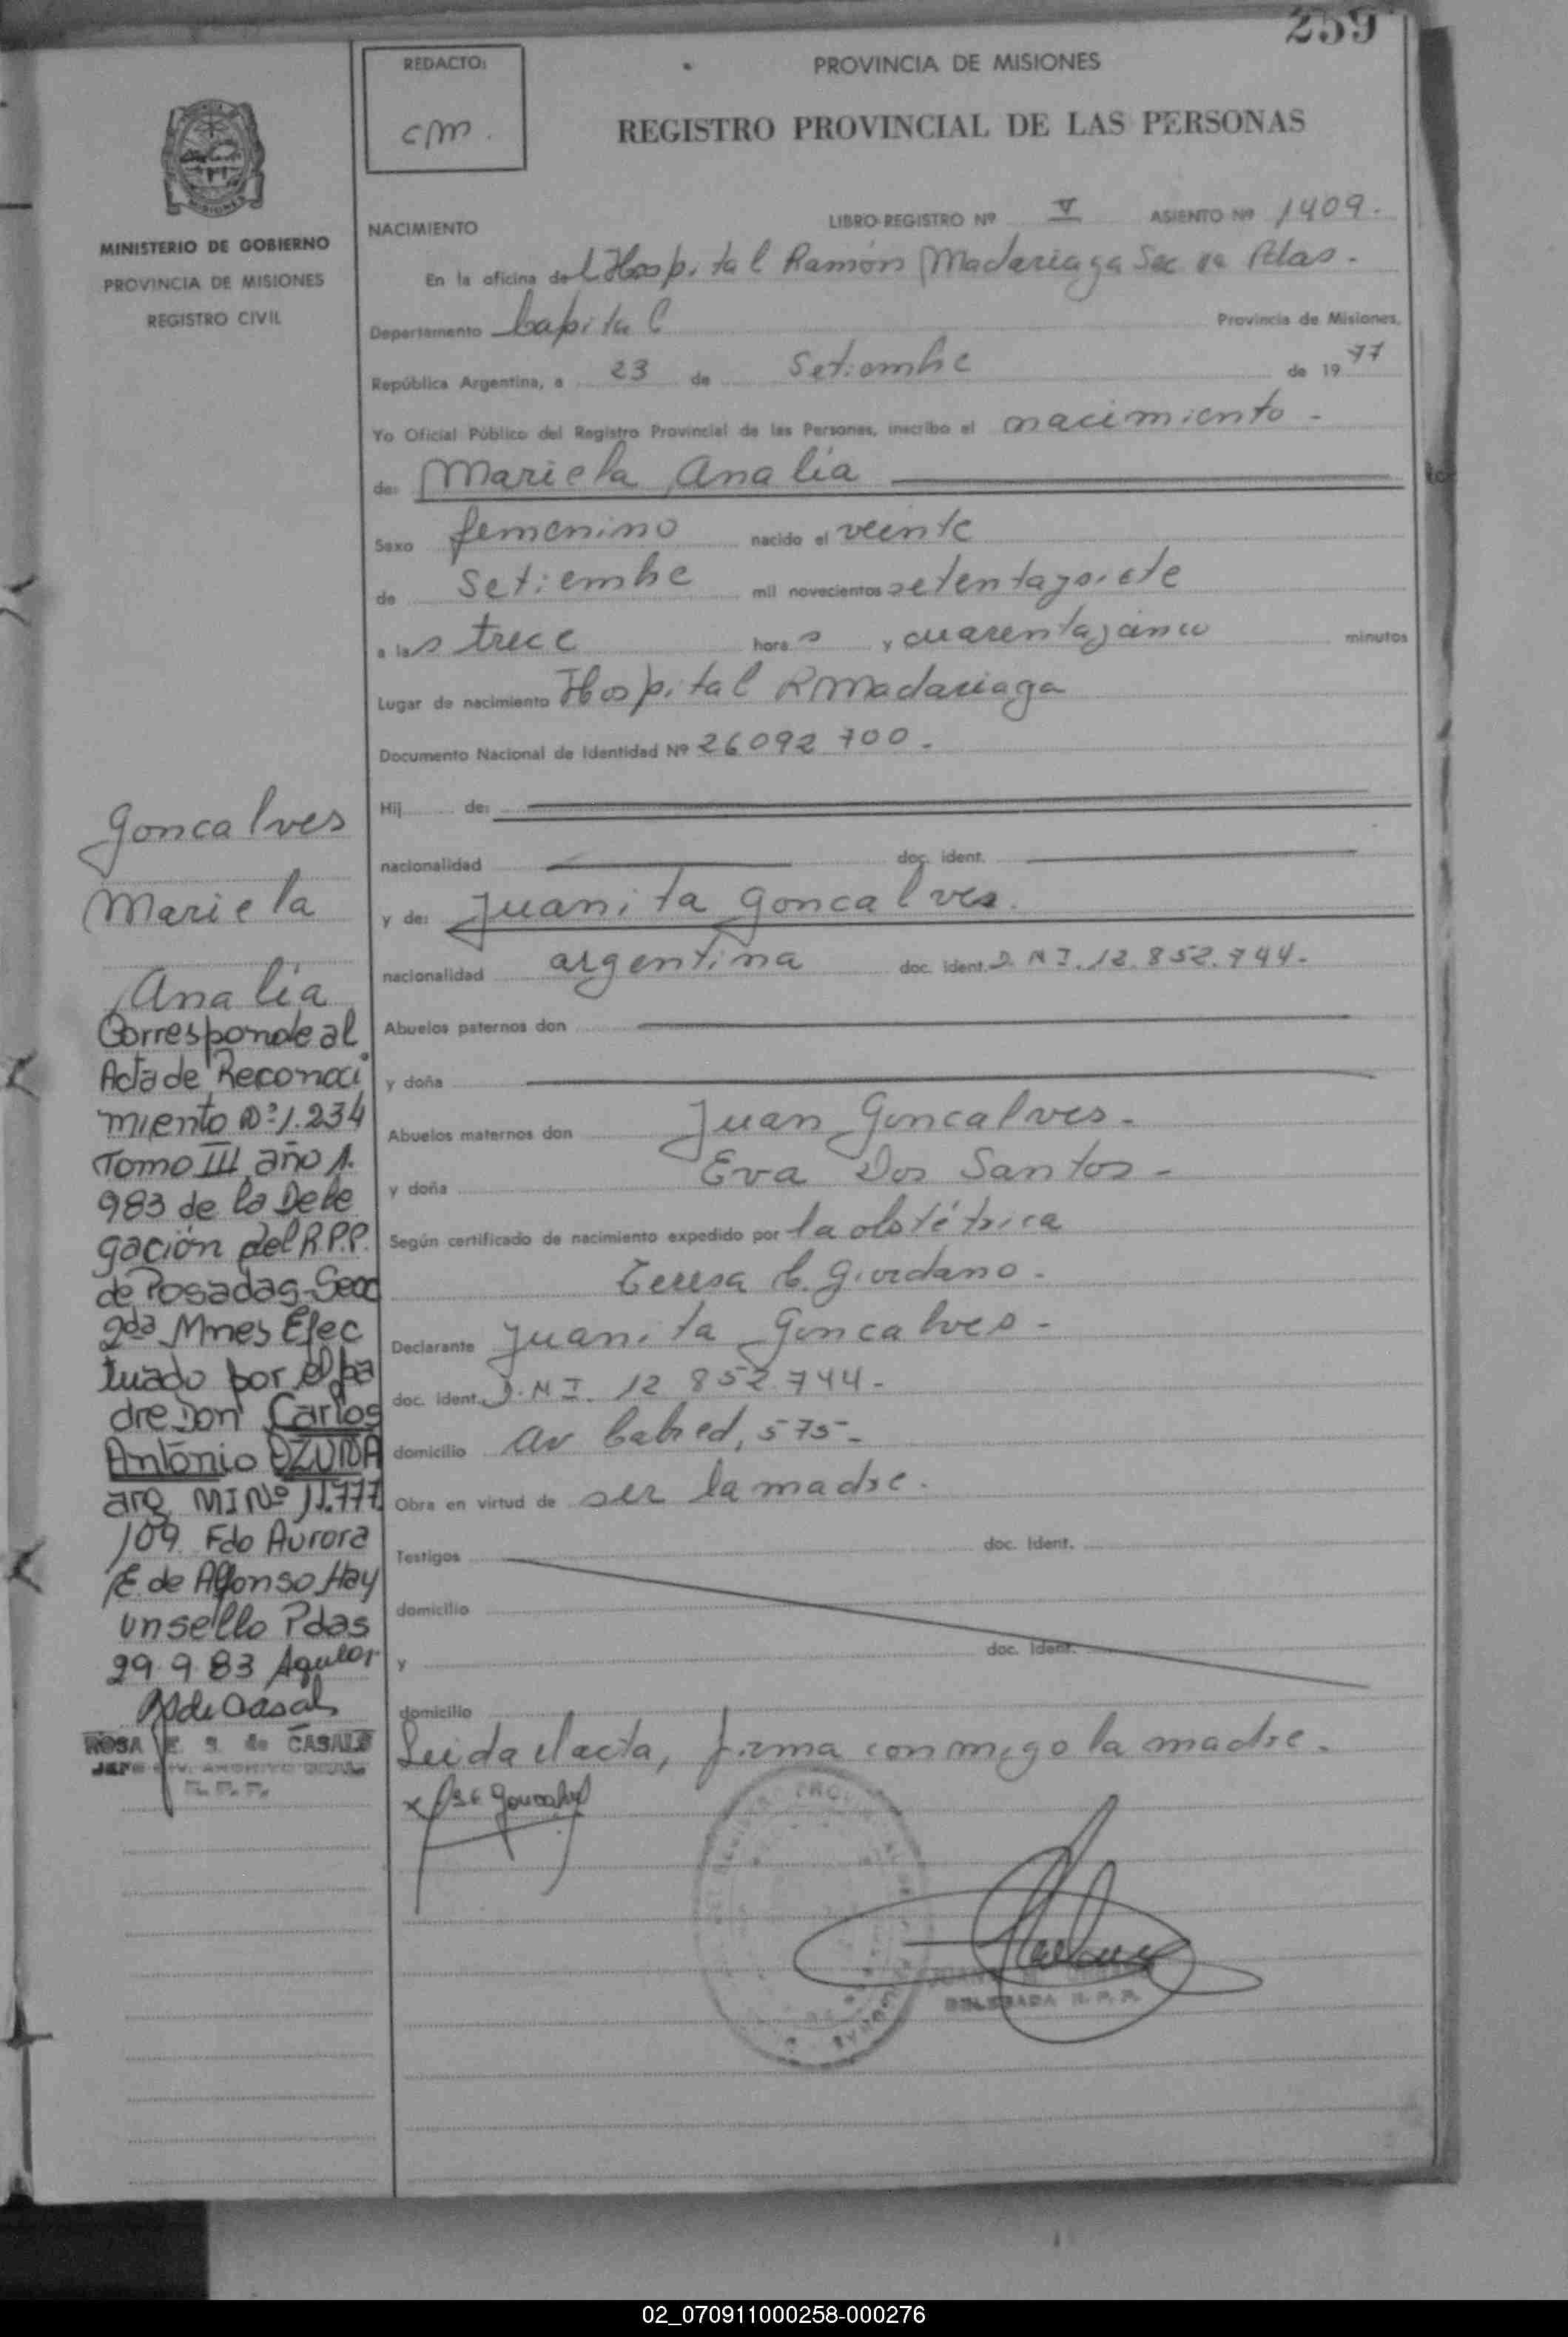 259
REDACTO:
cm.
PROVINCIA DE MISIONES
REGISTRO PROVINCIAL DE LAS PERSONAS
MISIONES
MINISTERIO DE GOBIERNO
PROVINCIA DE MISIONES
REGISTRO CIVIL
NACIMIENTO
LIBRO-REGISTRO Nº V ASIENTO Nº 1409.
En la oficina del Hospital Ramón Madariaga Sec Pdas.
Departamento Capital Provincia de Misiones,
República Argentina, a 23 de Setiembre de 1977
Yo Oficial Público del Registro Provincial de las Personas, inscribo el nacimiento
de: Mariela Analía
Sexo femenino nacido el veinte
de Setiembre mil novecientos setentaysiete
a las trece horas y cuarentaycinco minutos
Lugar de nacimiento Hospital R Madariaga
Documento Nacional de Identidad Nº 26092700.
Hij de:
nacionalidad doc. ident.
y de: Juanita Goncalves.
nacionalidad argentina doc. ident. D.N.I. 12.852.744.
Abuelos paternos don
y doña
Abuelos maternos don Juan Goncalves.
y doña Eva Dos Santos
Según certificado de nacimiento expedido por la obstétrica
Teresa C. Giordano.
Declarante Juanita Goncalves
doc. ident. D.N.I. 12 852.744
domicilio Av Cabred, 575
Obra en virtud de ser la madre.
Testigos doc. Ident.
domicilio
y doc. Ident.
domicilio
Leida el acta, firma conmigo la madre.
Goncalves
Mariela
Analía
Corresponde al
Acta de Reconoci
miento Nº 1.234
Tomo III año 1.
983 de la Dele
gación del R.P.P.
de Posadas-Secc
2da Mnes Efec
tuado por el pa
dre Don Carlos
Antonio OZUNA
arg MI Nº 11.777
109. Fdo Aurora
E. de Alfonso Hay
un sello Pdas
29.9.83
de Casals
ROSA E. S. de CASALS
R. P. P.
DELEGADA R. P. P.
02_070911000258-000276